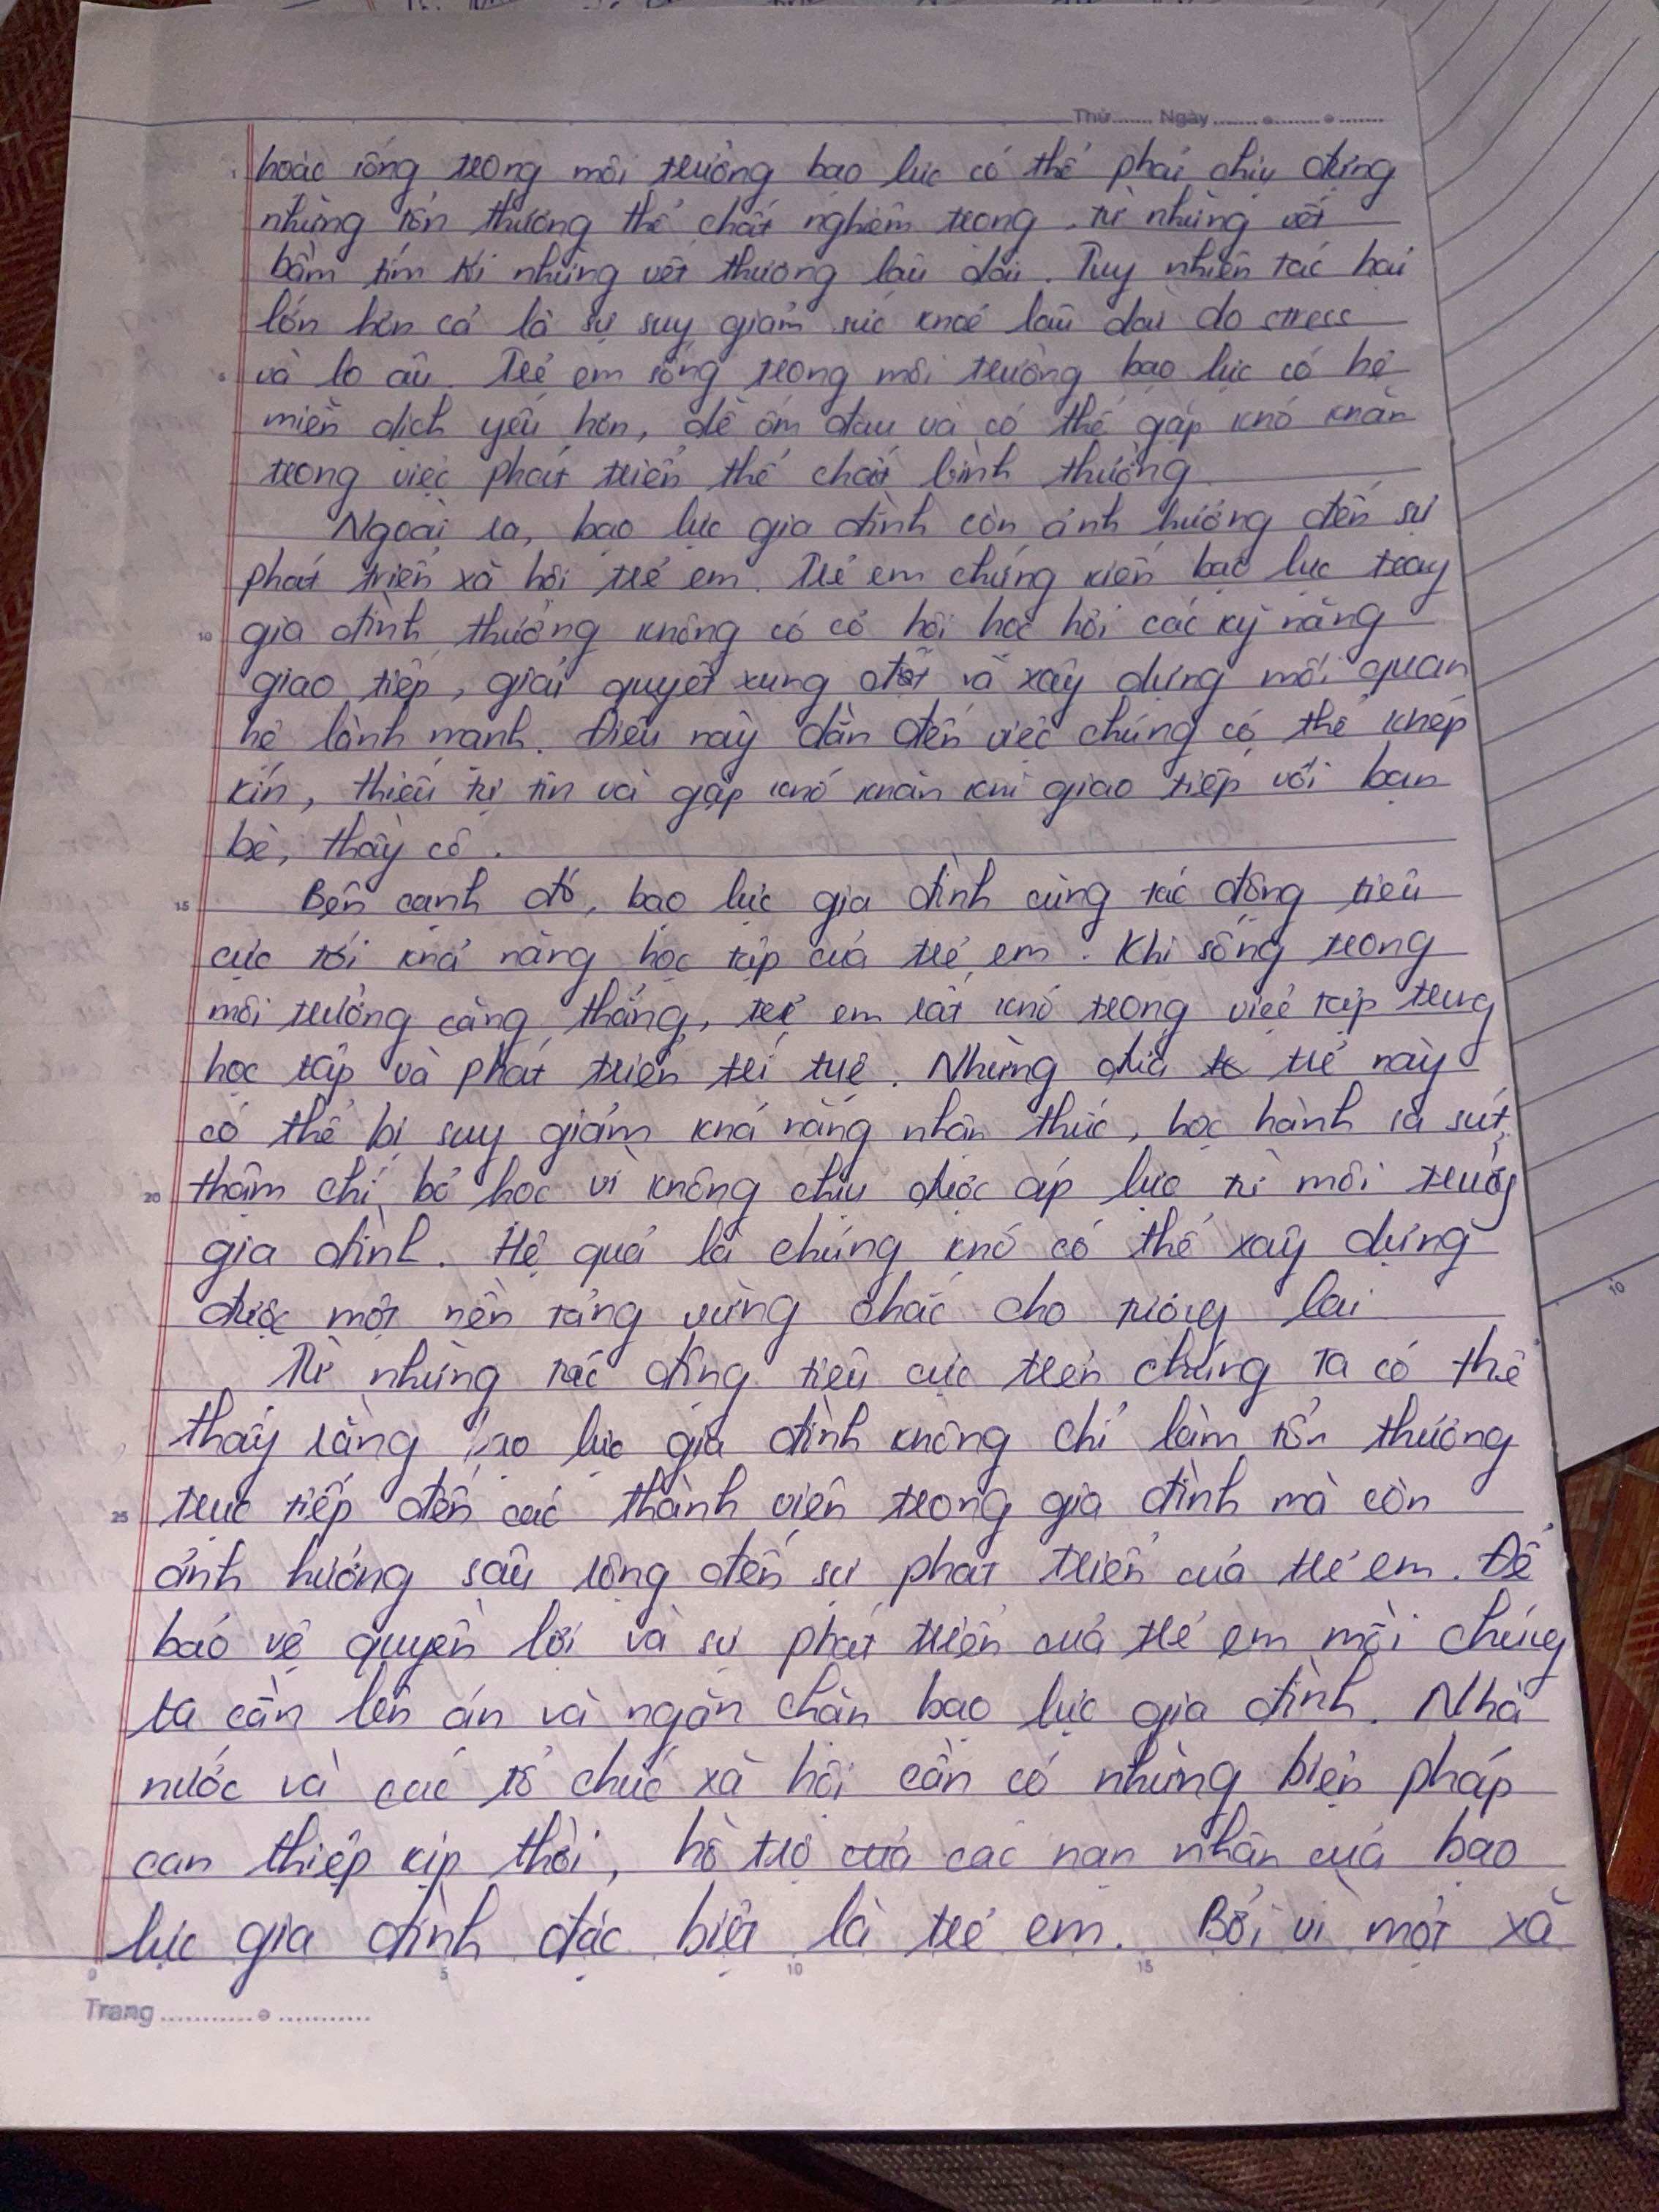 Thứ....... Ngày.......●.......●.......
hoặc sống trong môi trường bạo lực có thể phải chịu đựng
những tổn thương thể chất nghiêm trọng, từ những vết
bầm tím tới những vết thương lâu dài. Tuy nhiên tác hại
lớn hơn cả là sự suy giảm sức khoẻ lâu dài do stress
5 và lo âu. Trẻ em sống trong môi trường bạo lực có hệ
miễn dịch yếu hơn, dễ ốm đau và có thể gặp khó khăn
trong việc phát triển thể chất bình thường.
Ngoài ra, bạo lực gia đình còn ảnh hưởng đến sự
phát triển xã hội trẻ em. Trẻ em chứng kiến bạo lực trong
10 gia đình thường không có cơ hội học hỏi các kỹ năng
giao tiếp, giải quyết xung đột và xây dựng mối quan
hệ lành mạnh. Điều này dẫn đến việc chúng có thể khép
kín, thiếu tự tin và gặp khó khăn khi giao tiếp với bạn
bè, thầy cô.
15 Bên cạnh đó, bạo lực gia đình cũng tác động tiêu
cực tới khả năng học tập của trẻ em. Khi sống trong
môi trường căng thẳng, trẻ em rất khó trong việc tập trung
học tập và phát triển trí tuệ. Những đứa trẻ này
có thể bị suy giảm khả năng nhận thức, học hành sa sút,
20 thậm chí bỏ học vì không chịu được áp lực từ môi trường
gia đình. Hệ quả là chúng khó có thể xây dựng
được một nền tảng vững chắc cho tương lai
Từ những tác động tiêu cực trên chúng ta có thể
thấy rằng bạo lực gia đình không chỉ làm tổn thương
25 trực tiếp đến các thành viên trong gia đình mà còn
ảnh hưởng sâu rộng đến sự phát triển của trẻ em. Để
bảo vệ quyền lợi và sự phát triển của trẻ em mỗi chúng
ta cần lên án và ngăn chặn bạo lực gia đình. Nhà
nước và các tổ chức xã hội cần có những biện pháp
can thiệp kịp thời, hỗ trợ của các nạn nhân của bạo
lực gia đình đặc biệt là trẻ em. Bởi vì một xã
0 5 10 15
Trang ............●............
10